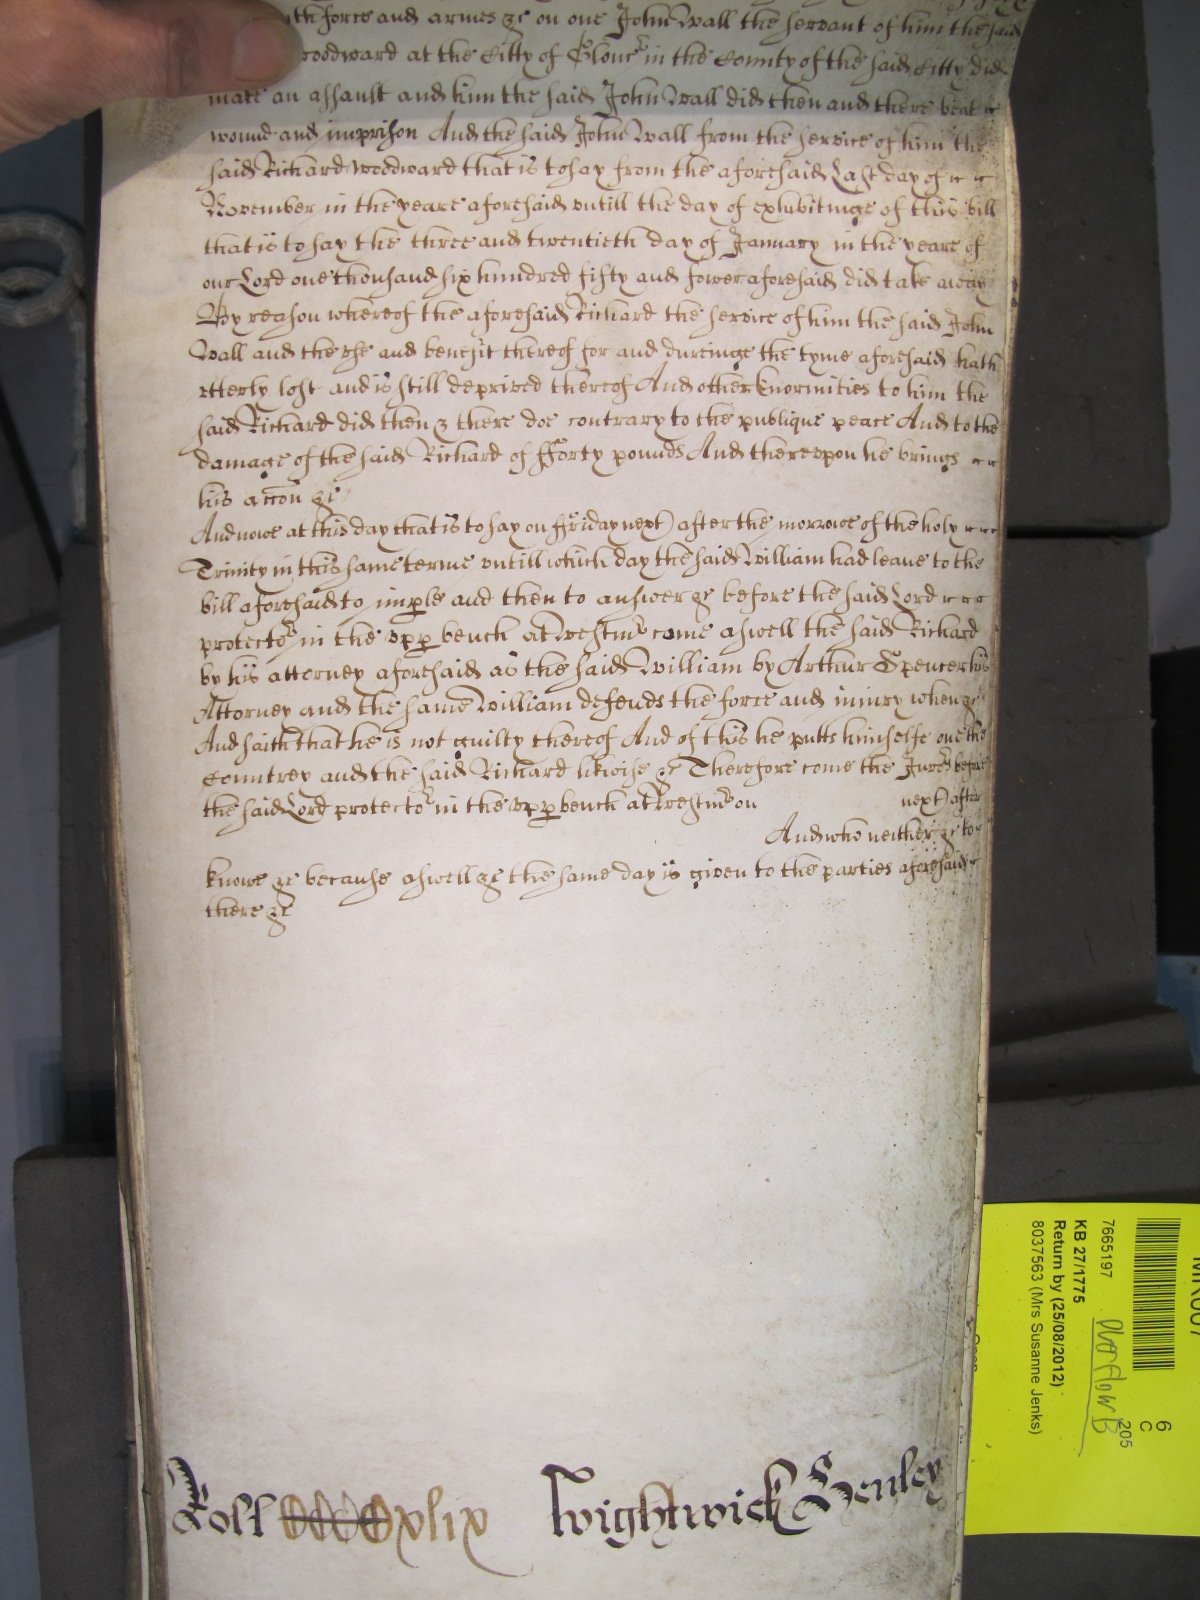 force and armes &c on one John Wall the servant of him the said
Woodward at the Citty of Glouc^r in the County of the said Citty did
make an assault and him the said John Wall did then and there beat
wound and imprison And the said John Wall from the service of him the
said Richard Woodward that is to say from the aforesaid Last day of
November in the yeare aforesaid vntill the day of exhibitinge of this bill
that is to say the three and twentieth day of January in the yeare of
our Lord one thousand six hundred fifty and fower aforesaid did take away
By reason whereof the aforesaid Richard the service of him the said John
Wall and the vse and benefit thereof for and duringe the tyme aforesaid hath
vtterly lost and is still deprived thereof And other Enormities to him the
said Richard did then & there doe contrary to the publique peace And to the
damage of the said Richard of fforty pounds And therevpon he brings
his accon &c
And nowe at this day that is to say on ffriday next after the morrowe of the holy
Trinity in this same terme vntill which day the said William had leave to the
bill aforesaid to imple and then to answer &c before the said Lord
protecto^r in the vpp bench at Westm^r come aswell the said Richard
by his attorney aforesaid as the said William by Arthur Spencer his
Attorney and the same William defends the force and iniury when &c
And saith that he is not guilty thereof And of this he putts himselfe on the
Countrey and the said Richard likwise &c Therefore come the Jur^s before
the said Lord protecto^r in the vpp bench at Westm^r on next after
And who neither &c to
knowe &c because aswell &c the same day is given to the parties aforesaid
there &c
Roll xlix Wightwick Henley
7665197
KB 27/1775
Return by (25/08/2012)
8037563 (Mrs Susanne Jenks)
Overflow B
205
6
C